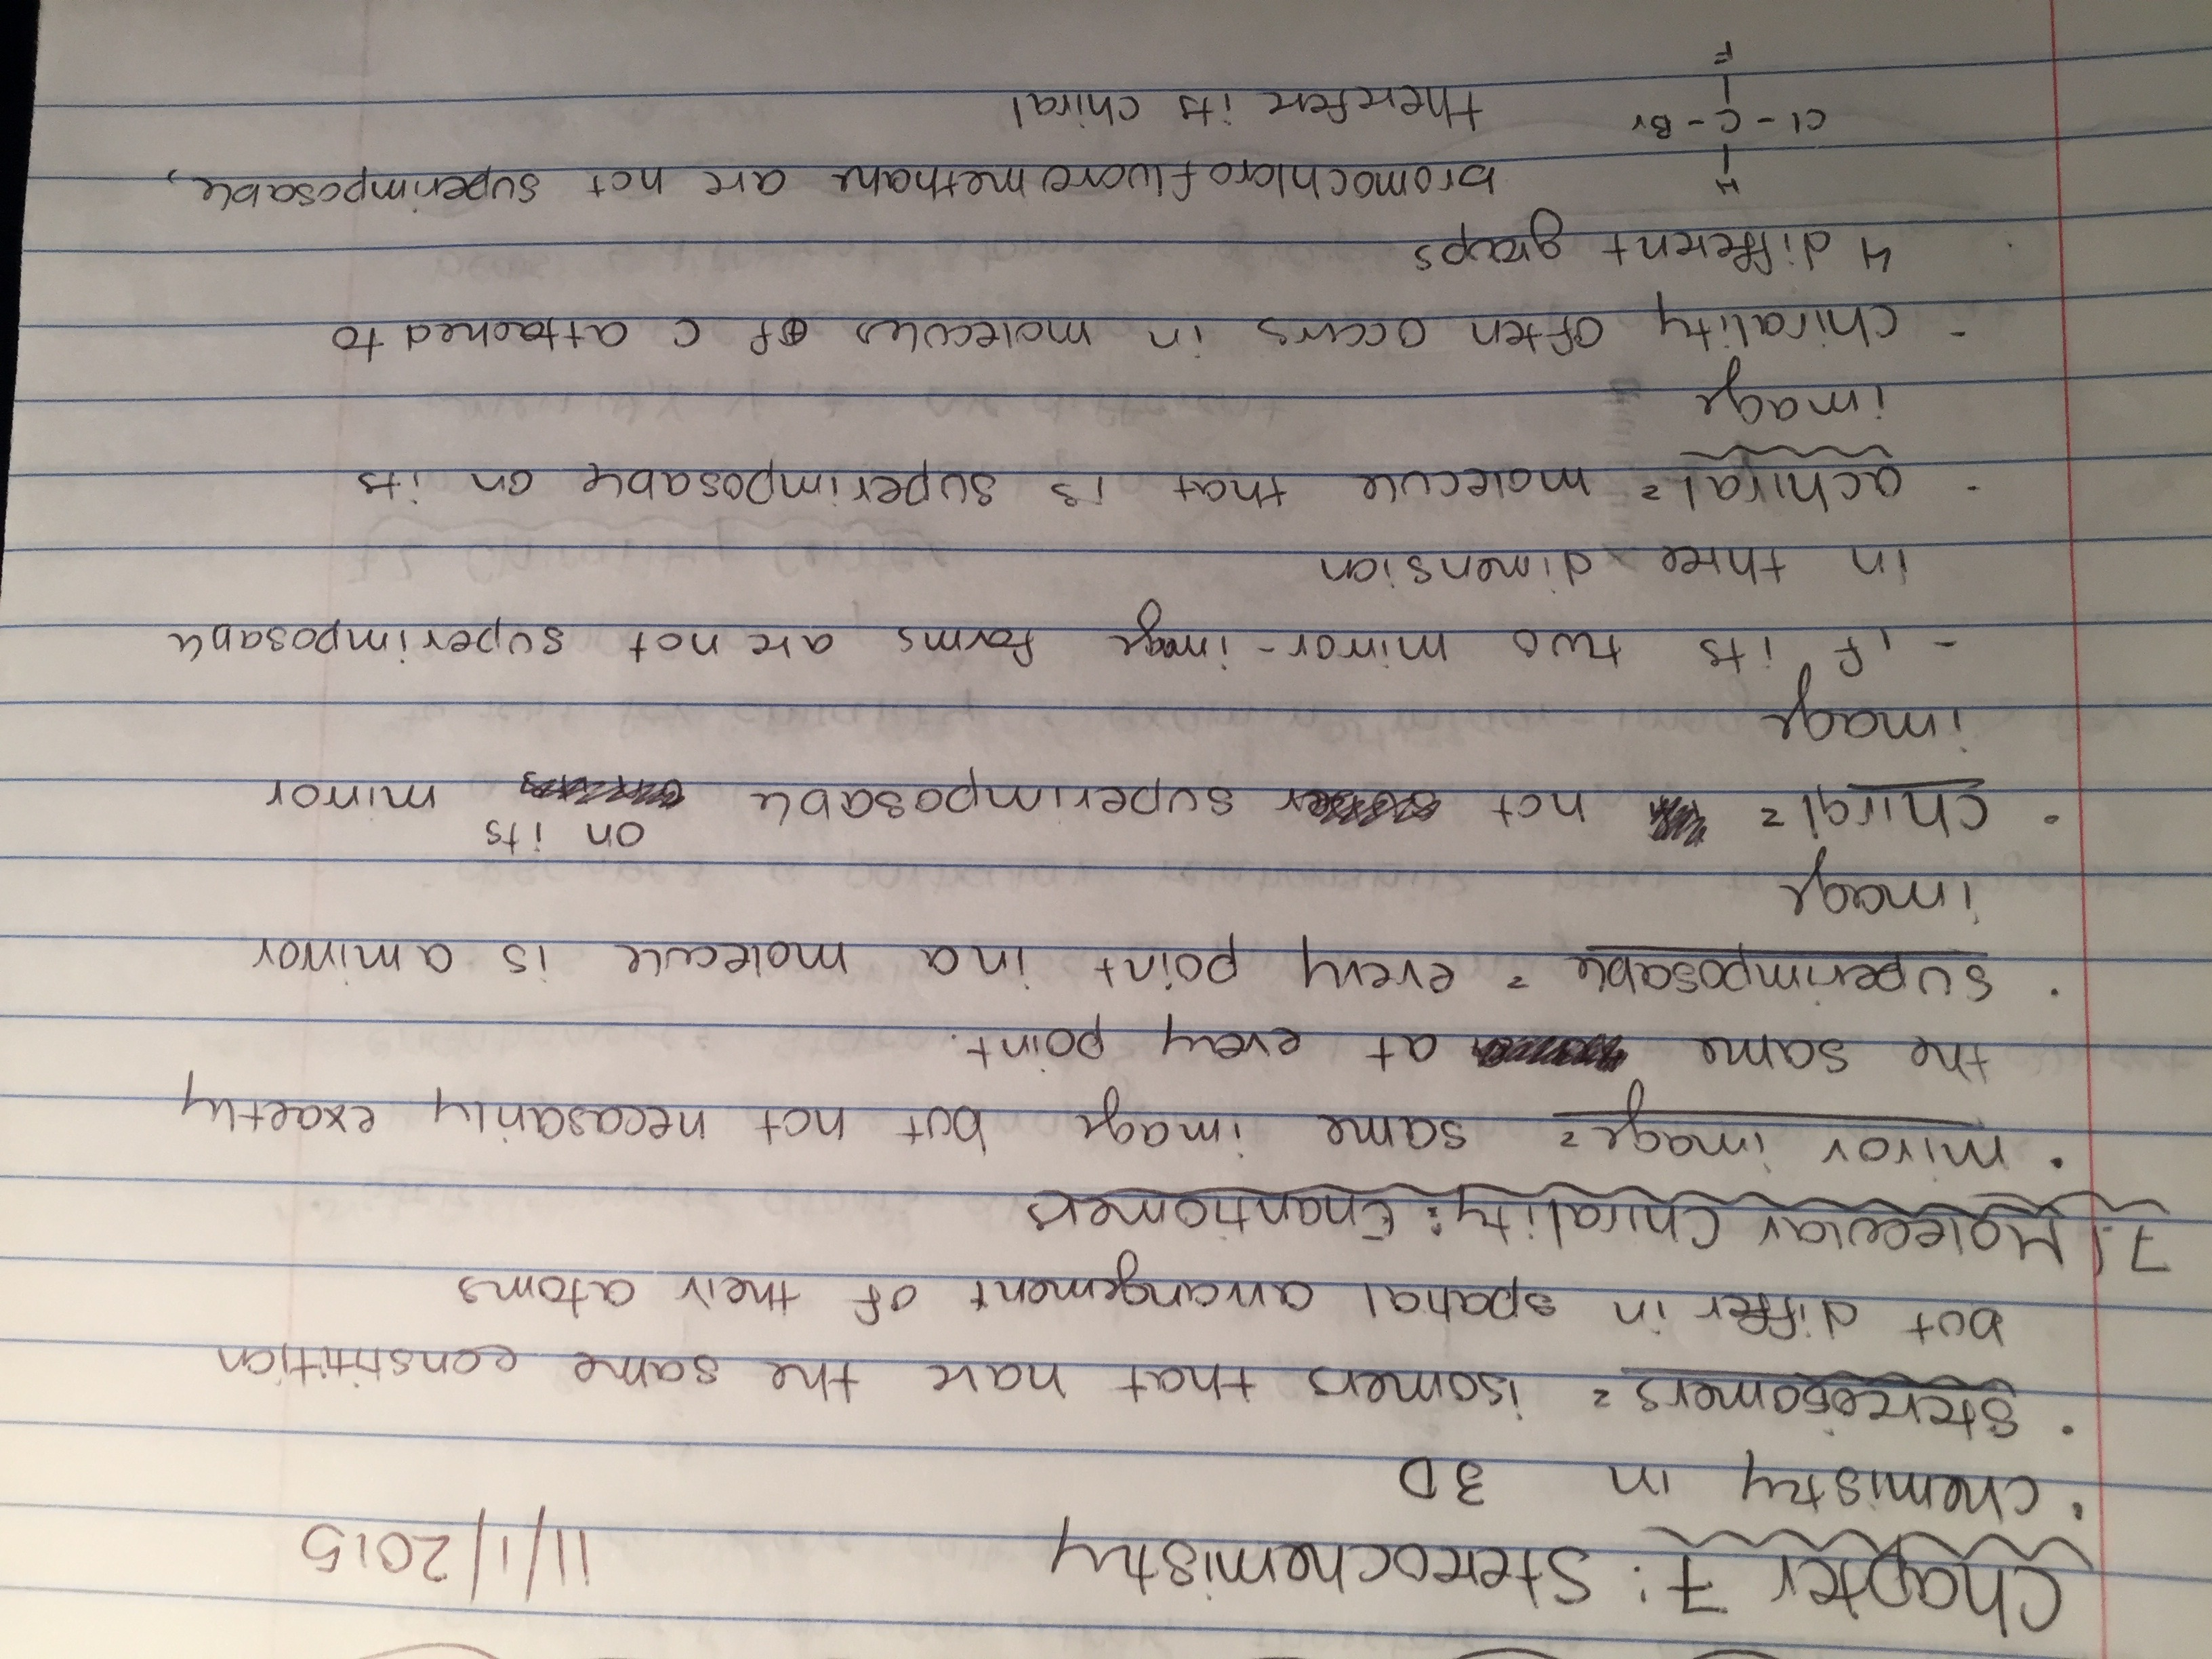 Chapter 7: Sterochemistry 11/1/2015
• chemistry in 3D
• Stereisomers = isomers that have the same constitition
but differ in spatial arrangement of their atoms
7.1 Molecular Chirality: Enantiomers
• mirror image = same image but not necasarily exactly
the same at every point.
• superimposable = every point in a molecule is a mirror
image
• chiral = not superimposable on its mirror
image
- if its two mirror-image forms are not superimposable
in three dimension
• achiral = molecule that is superimposable on its
image
- chirality often occurs in molecules of C attached to
4 different groups
H bromochlorofluoromethane are not superimposable,
Cl - C - Br therefore its chiral
F